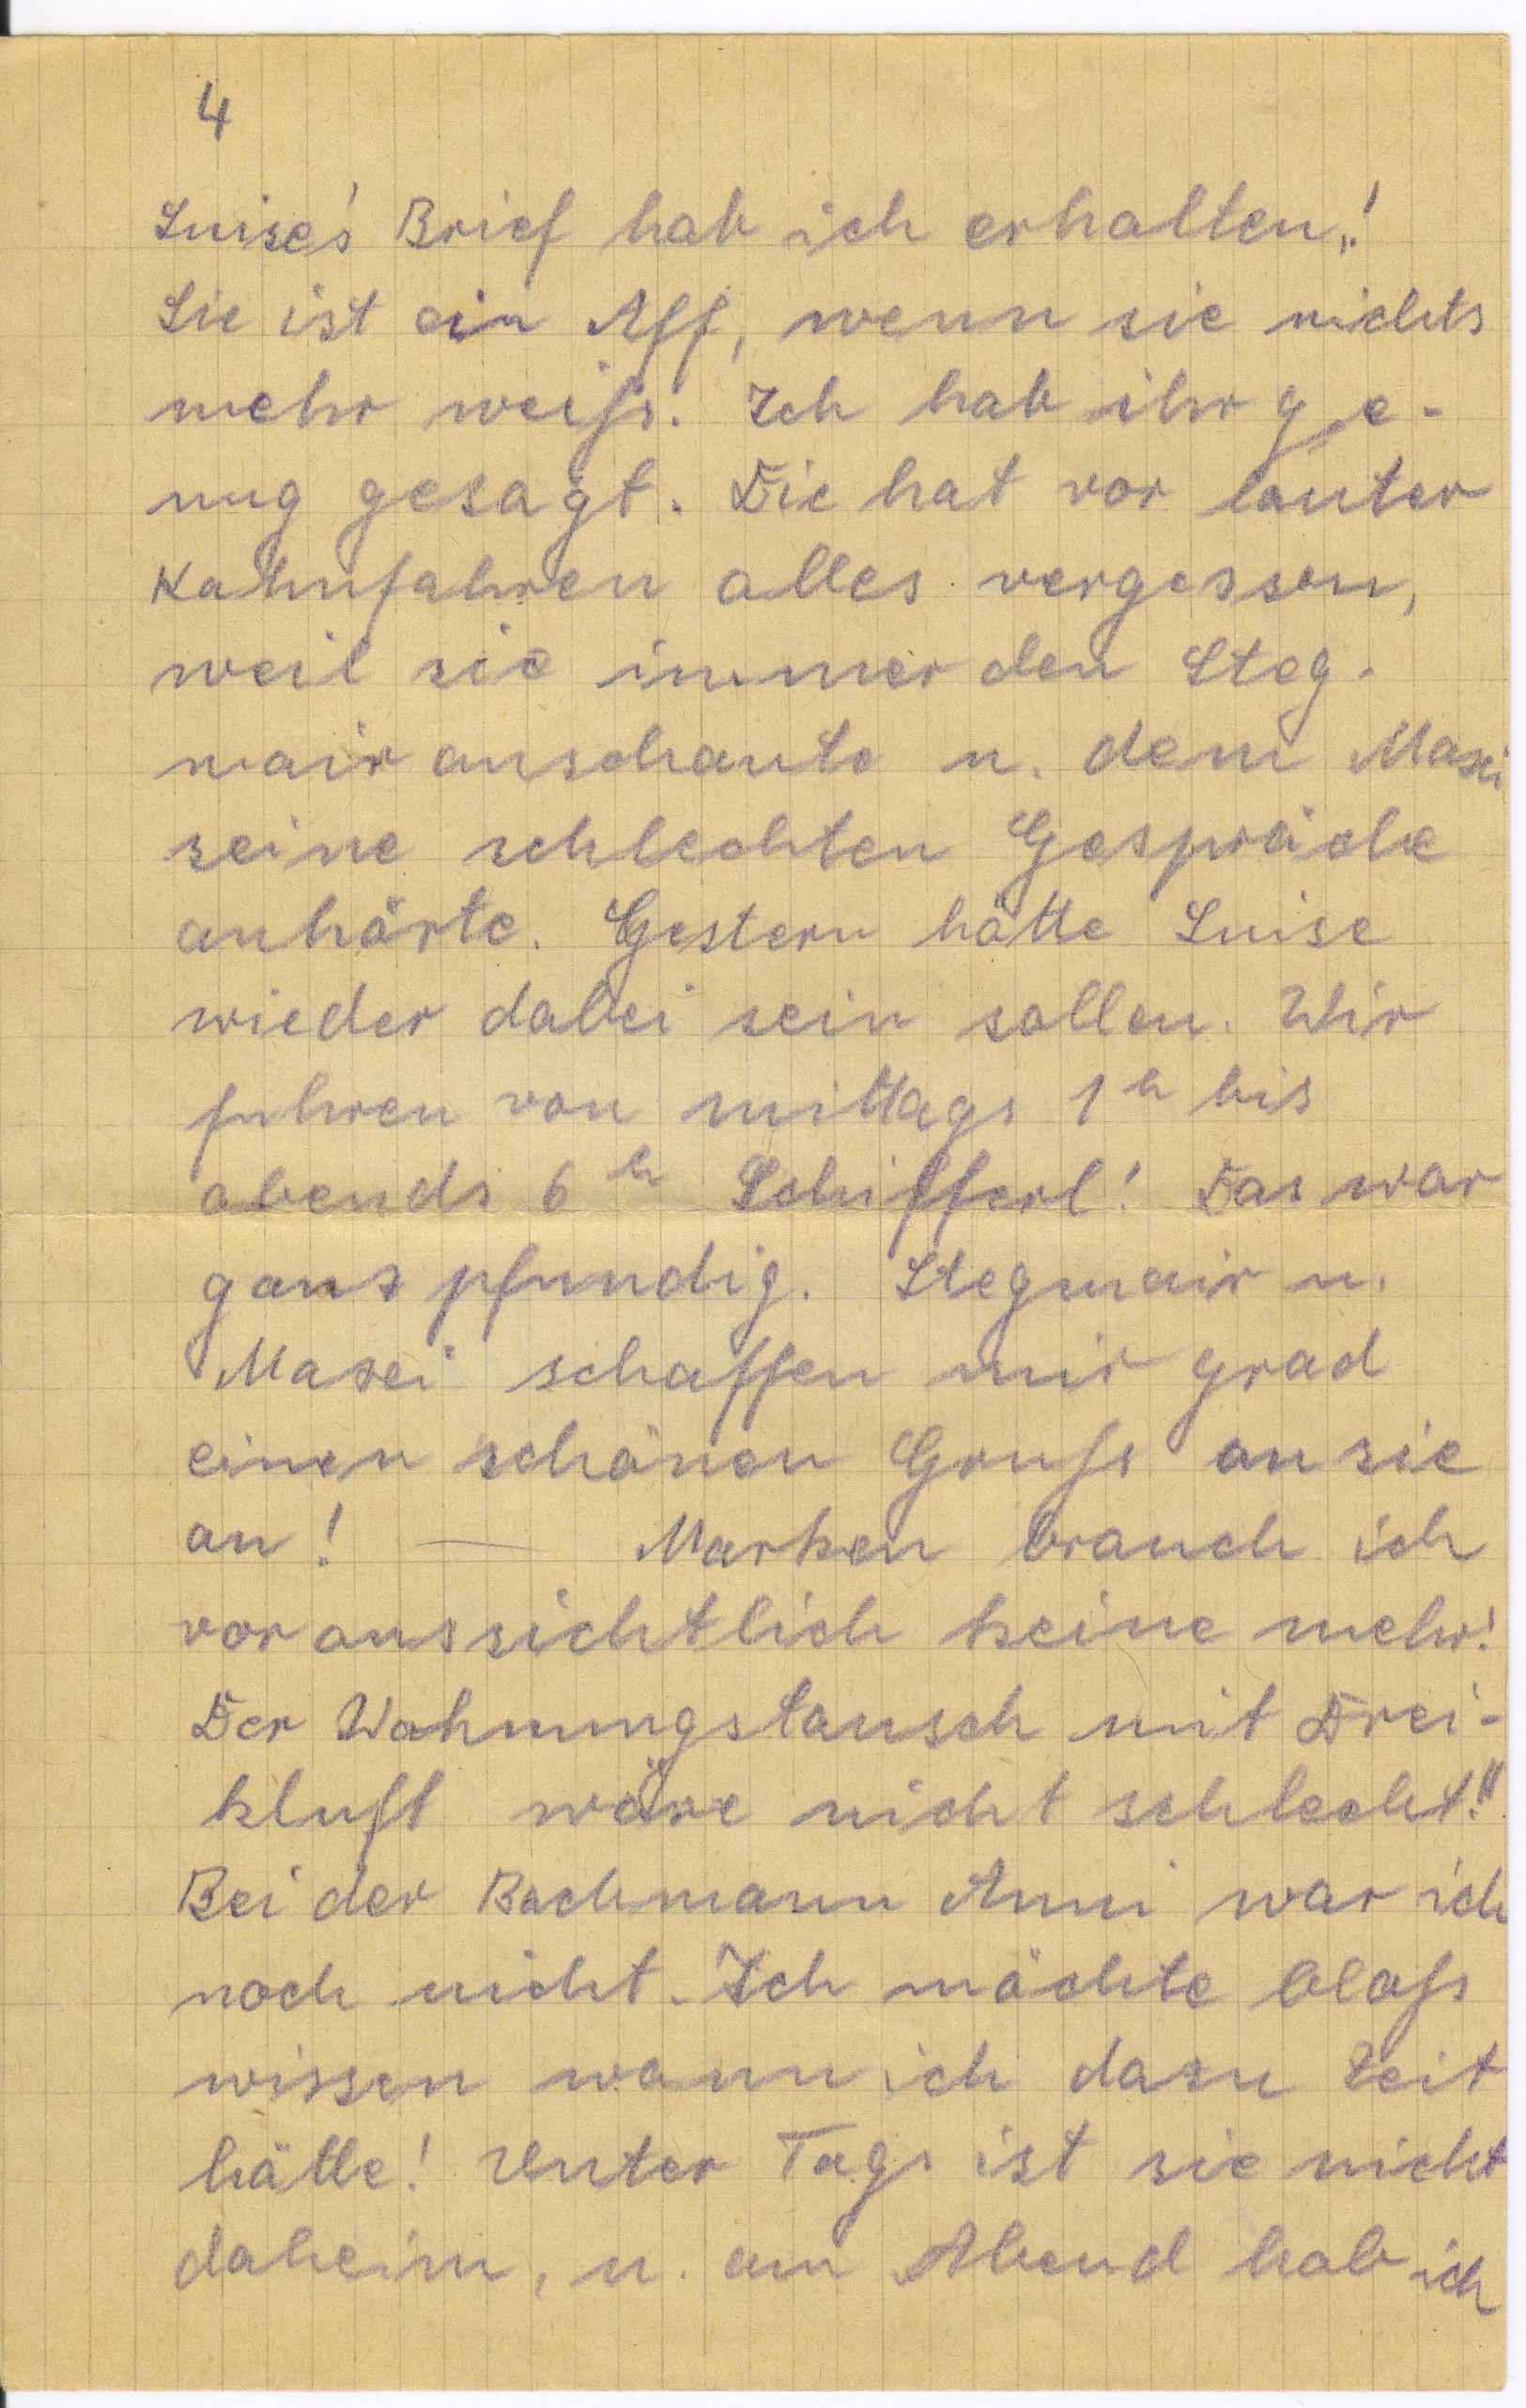 4
Luise's Brief hab ich erhalten!
Sie ist ein Aff, wenn sie nichts
mehr weiß. Ich hab ihr ge-
nug gesagt. Die hat vor lauter
Kahnfahren alles vergessen,
weil sie immer den Steg-
mair anschaute u. dem Maxei
seine schlechten Gespräche
anhörte. Gestern hätte Luise
wieder dabei sein sollen. Wir
fuhren von mittags 1 h bis
abends 6 h Schifferl! Das war
ganz pfundig. Stegmair u.
Maxei schaffen mir grad
einen schönen Gruß an sie
an! — Marken brauch ich
voraussichtlich keine mehr!
Der Wohnungstausch mit Drei-
kluft wäre nicht schlecht!!
Bei der Bachmann Anni war ich
noch nicht. Ich möchte bloß
wissen wann ich dazu Zeit
hätte! Unter Tags ist sie nicht
daheim, u. am Abend hab ich